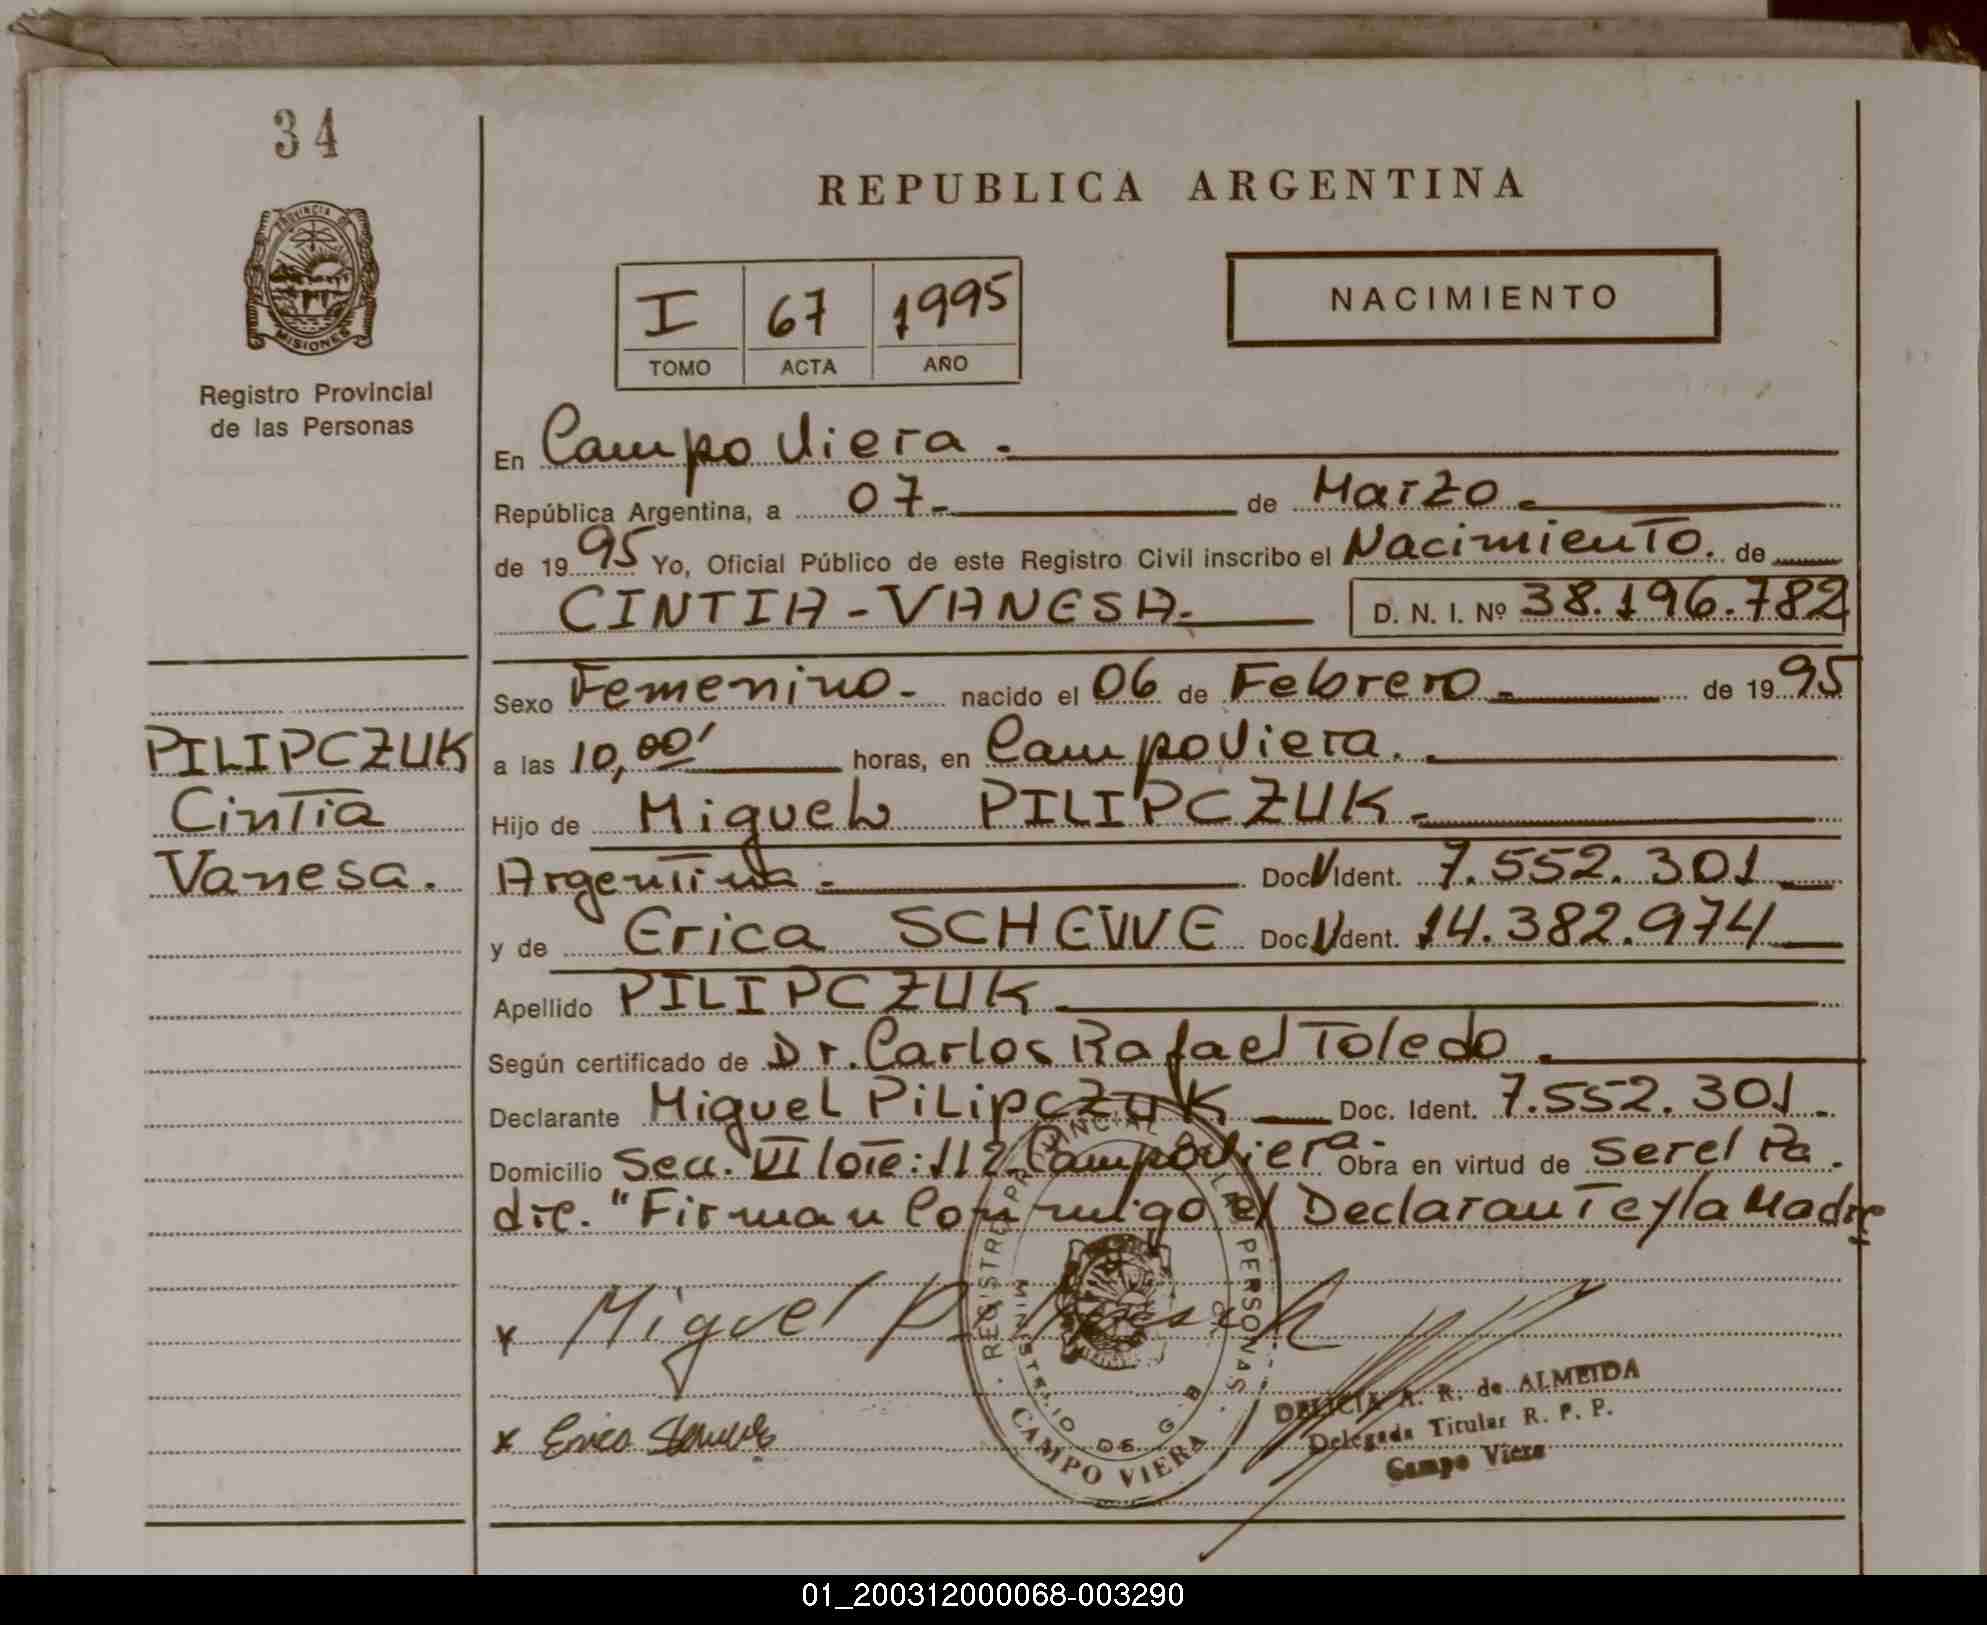 34
PROVINCIA DE
MISIONES
Registro Provincial
de las Personas
REPUBLICA ARGENTINA
I 67 1995
TOMO ACTA AÑO
NACIMIENTO
En Campo Viera.
República Argentina, a 07- de Marzo.
de 1995 Yo, Oficial Público de este Registro Civil inscribo el Nacimiento. de
CINTIA-VANESA. D. N. I. Nº 38.196.782
Sexo Femenino- nacido el 06 de Febrero- de 1995
PILIPCZUK
Cintia
Vanesa.
a las 10,00' horas, en Campo Viera.
Hijo de Miguel PILIPCZUK-
Argentina- Doc. Ident. 7.552.301
y de Erica SCHEWE Doc. Ident. 14.382.974
Apellido PILIPCZUK
Según certificado de Dr. Carlos Rafael Toledo.
Declarante Miguel Pilipczuk Doc. Ident. 7.552.301.
Domicilio Secc. VI lote: 112 Campo Viera- Obra en virtud de ser el Pa
dre. "Firman Conmigo el Declarante y la Madre
x Miguel
x Erica
REGISTRO PROVINCIAL DE LAS PERSONAS
MINISTERIO DE G.
CAMPO VIERA
DELICIA A. R. de ALMEIDA
Delegada Titular R. P. P.
Campo Viera
01_200312000068-003290